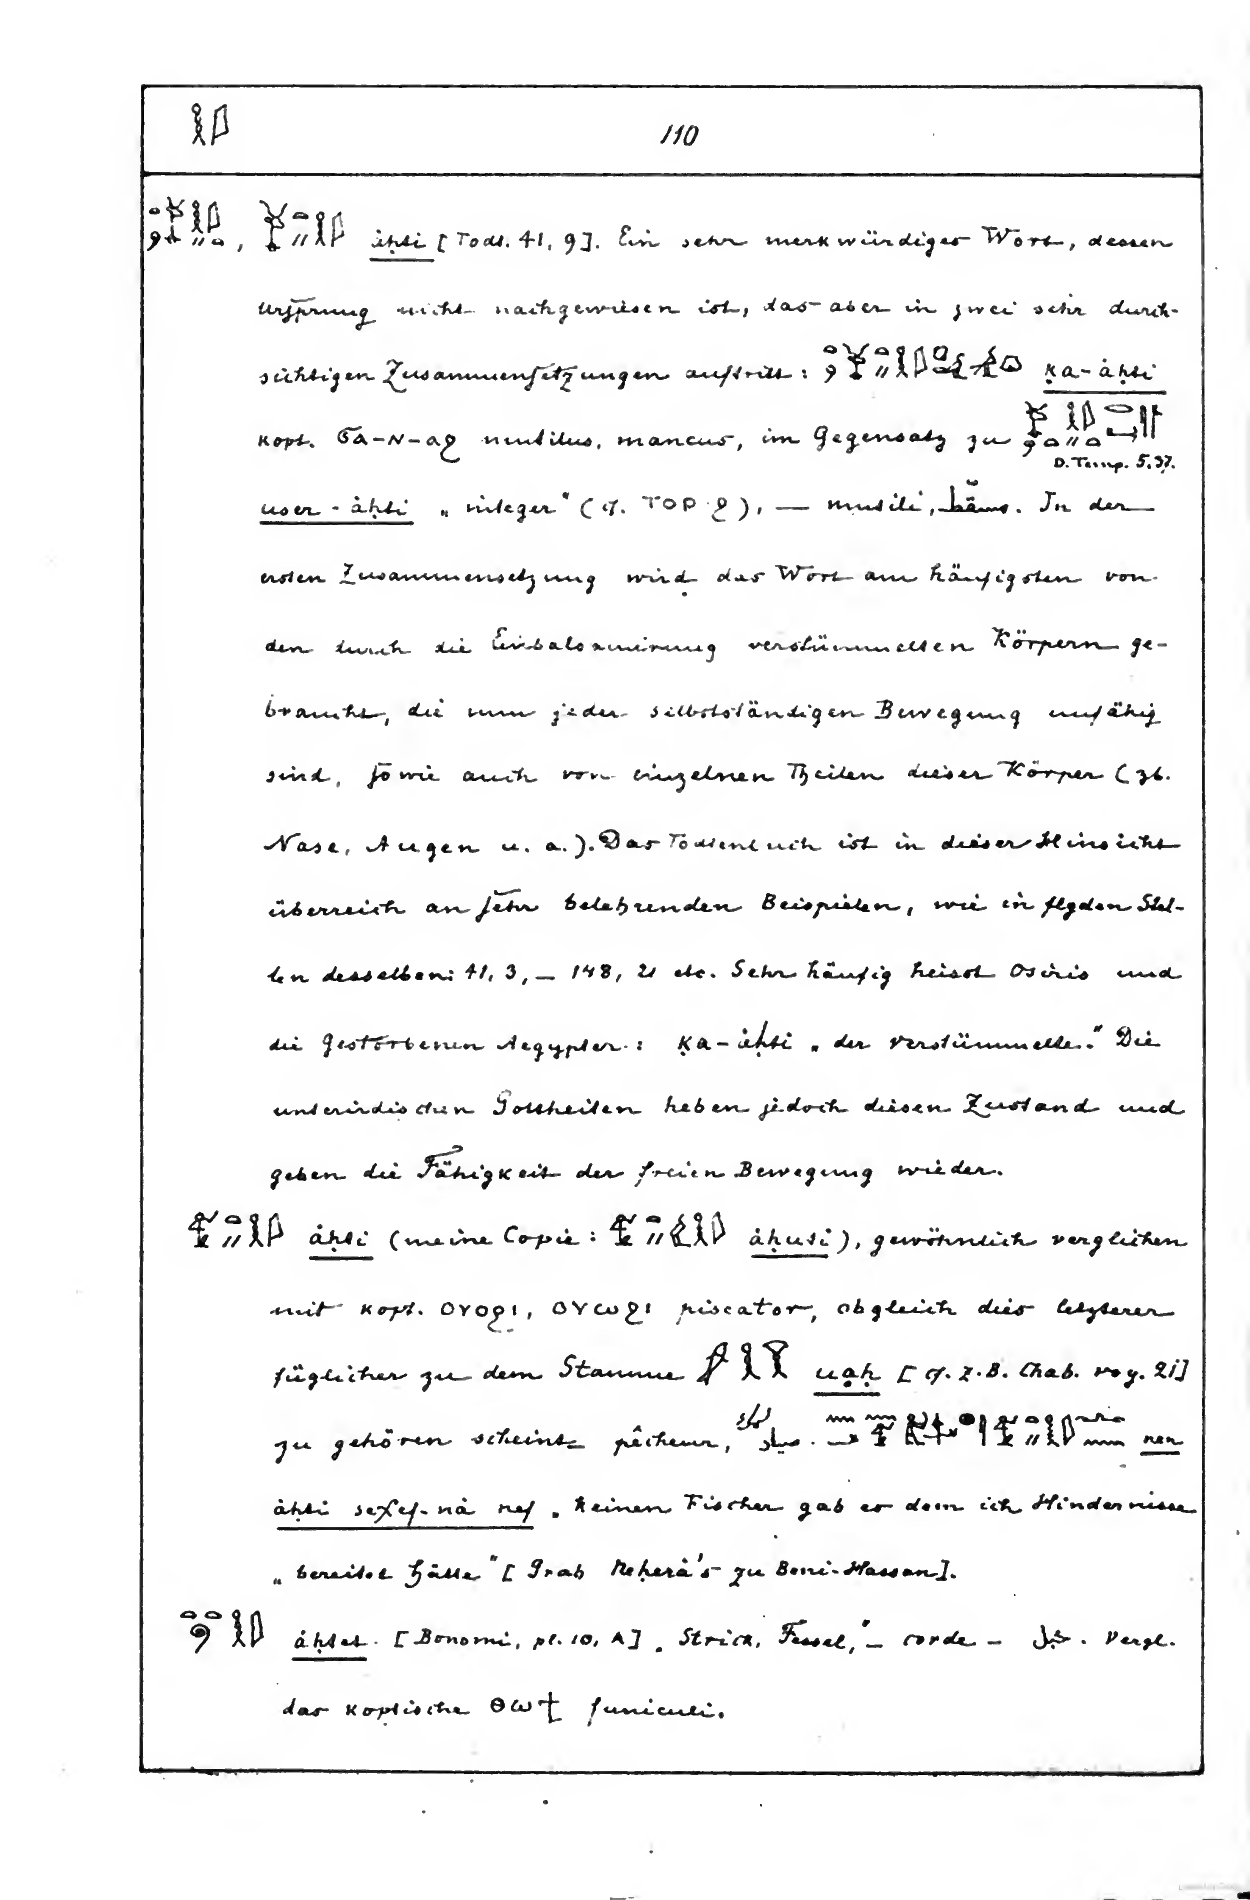 110
, åḥti [Todt. 41, 9]. Ein sehr merkwürdiges Wort, dessen
Ursprung nicht nachgewiesen ist, das aber in zwei sehr durch-
sichtigen Zusammensetzungen auftritt: ḳa-åḥti
kopt. ϭⲁ-ⲛ-ⲁϩ mutilus, mancus, im Gegensatz zu
D. Temp. 5.37.
user-åḥti „integer“ (cf. ⲧⲟⲣϩ), — mutilé, In der
ersten Zusammensetzung wird das Wort am häufigsten von
den durch die Einbalsamirung verstümmelten Körpern ge-
braucht, die nun jeder selbstständigen Bewegung unfähig
sind, sowie auch von einzelnen Theilen dieser Körper (zb.
Nase, Augen u. a.). Das Todtenbuch ist in dieser Hinsicht
überreich an sehr belehrenden Beispielen, wie in flgden Stel-
len desselben: 41, 3, — 148, 21 etc. Sehr häufig heisst Osiris und
die gestorbenen Aegypter: ḳa-åḥti „der Verstümmelte.“ Die
unterirdischen Gottheiten heben jedoch diesen Zustand und
geben die Fähigkeit der freien Bewegung wieder.
åḥti (meine Copie: åḥuti), gewöhnlich verglichen
mit kopt. ⲟⲩⲟϩⲓ, ⲟⲩⲱϩⲓ piscator, obgleich dies letzterer
füglicher zu dem Stamme uạḥ [cf. z.B. Chab. voy. 21]
zu gehören scheint pêcheur, صياد. nen
åḥti seχef-nå nef „keinen Fischer gab es dem ich Hindernisse
„bereitet hätte“ [Grab Neḥerå's zu Beni-Hassan].
åḥtet [Bonomi, pl. 10, A] „Strick, Fessel,“ — corde — حبل. Vergl.
das koptische ⲑⲱϯ funiculi.